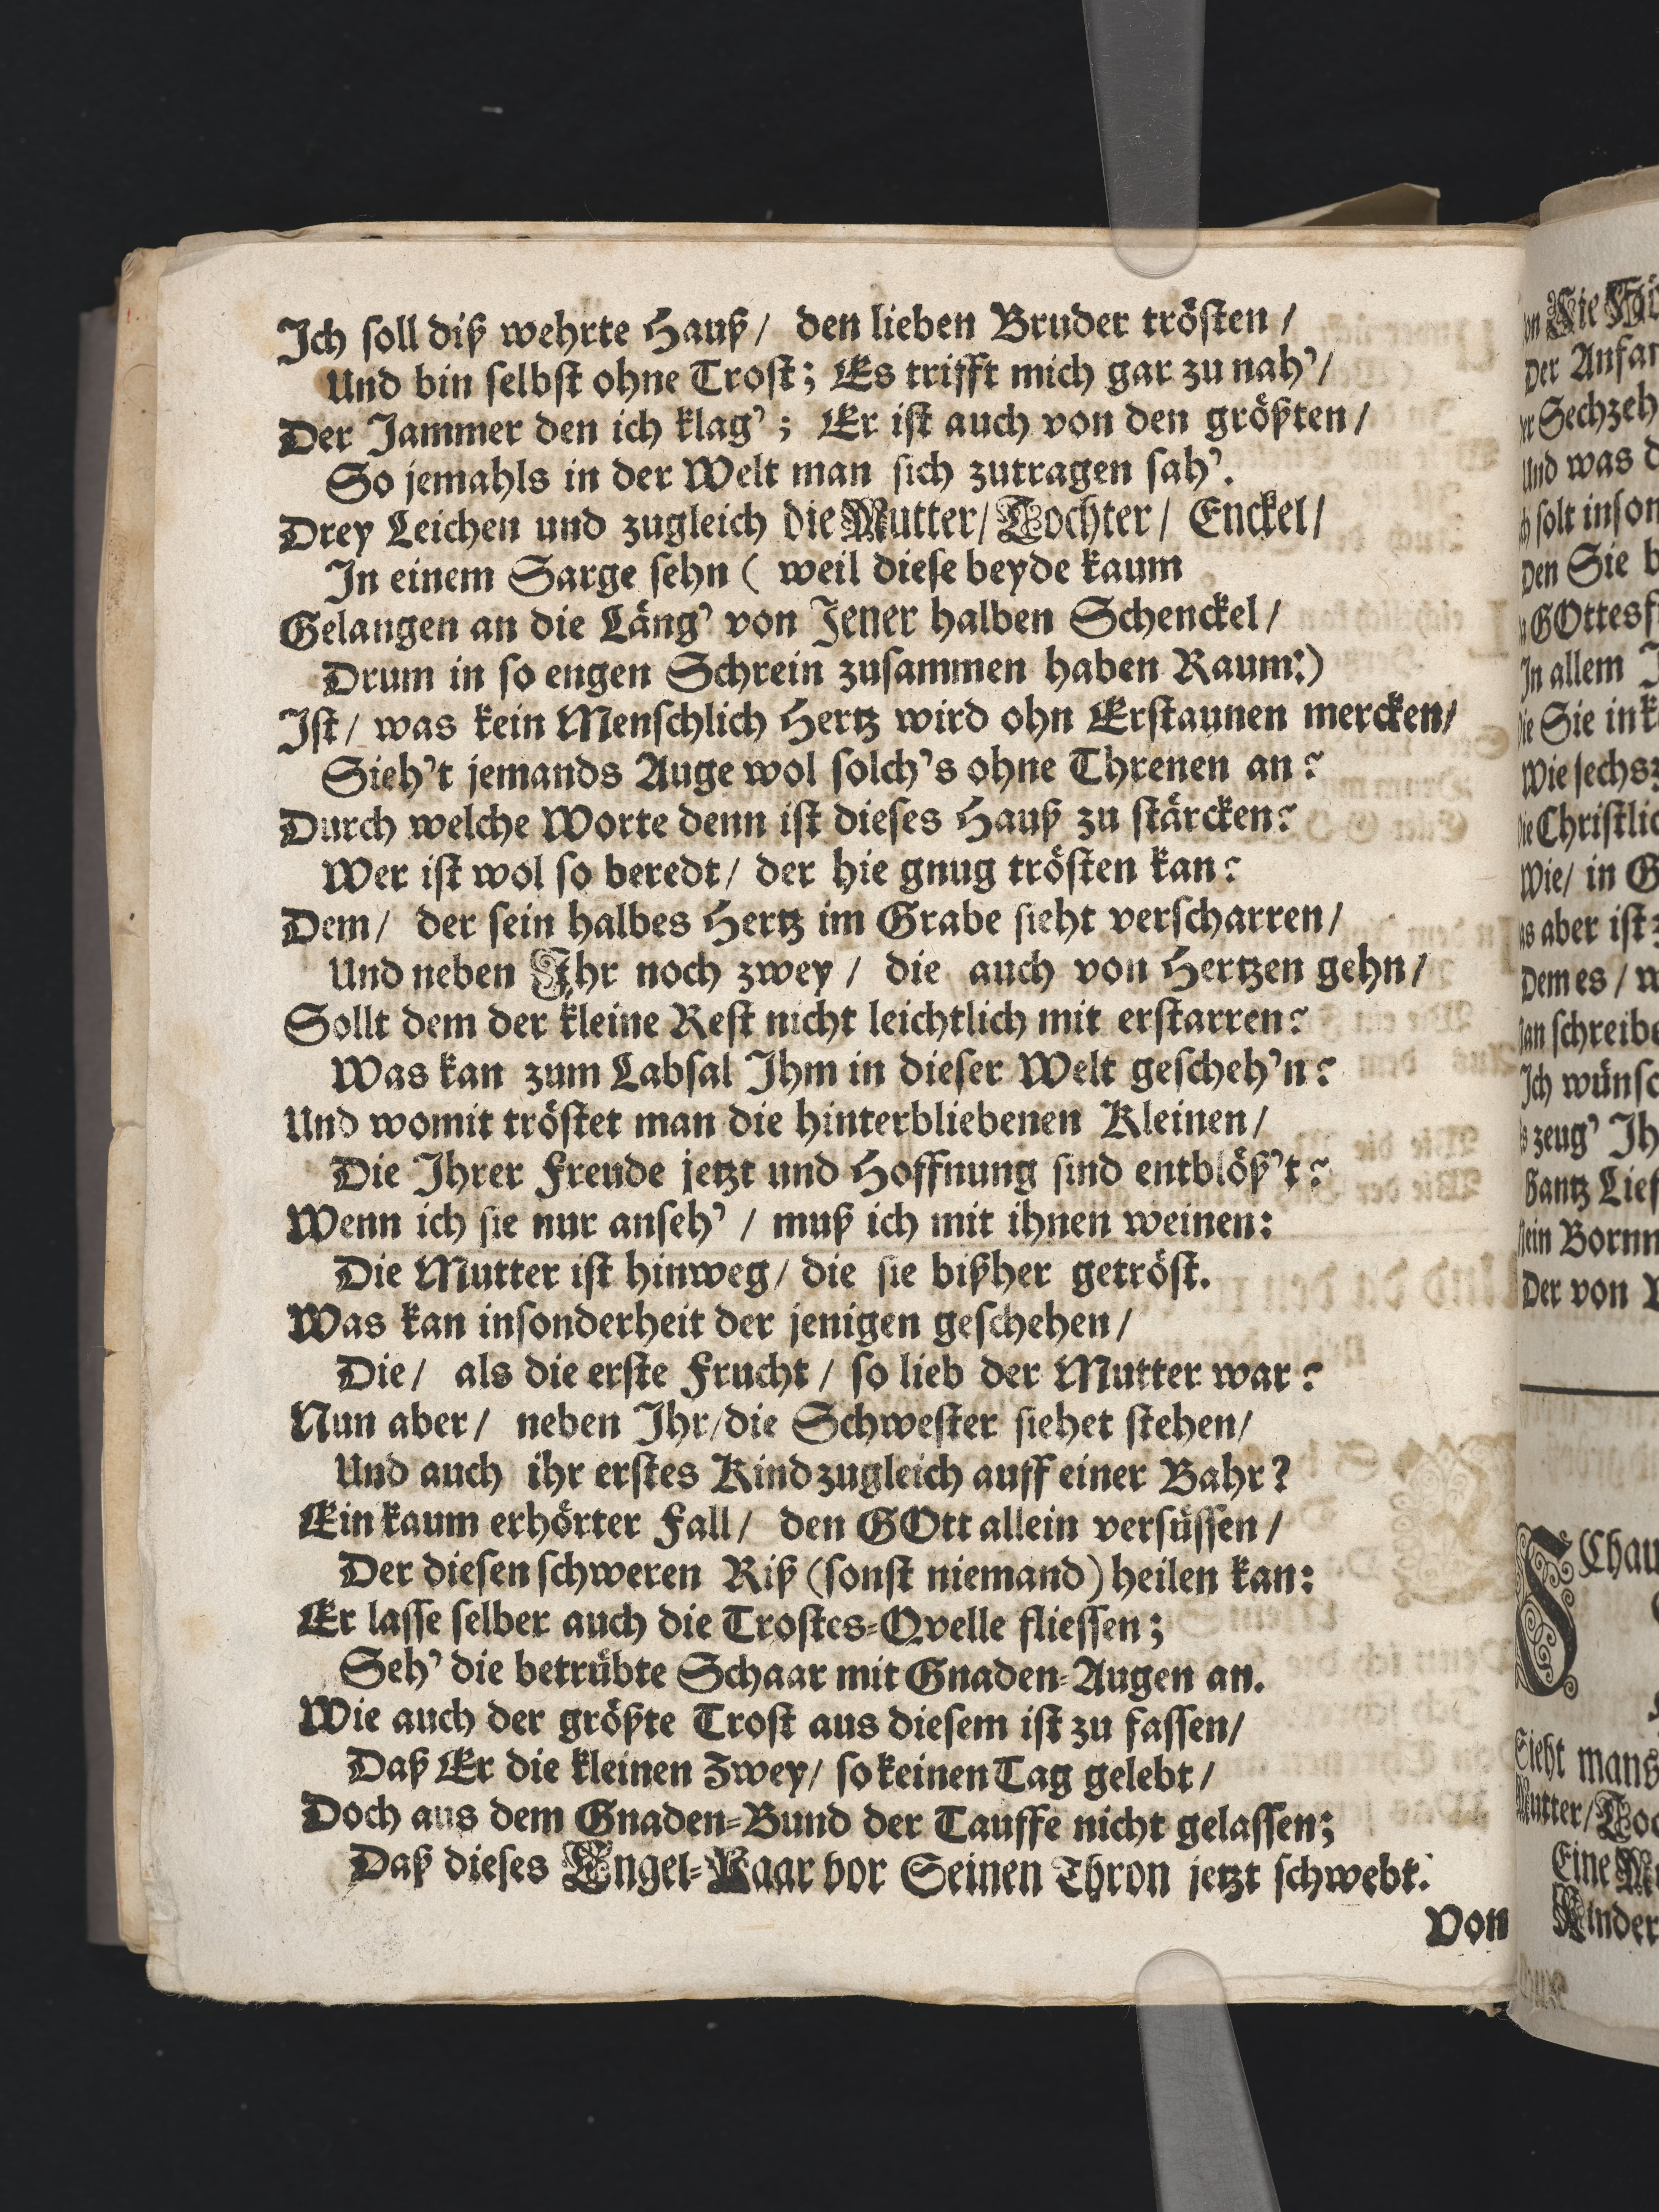 Ich soll diß wehrte Hauß / den lieben Bruder trösten /
Und bin selbst ohne Trost; Es trifft mich gar zu nah' /
Der Jammer den ich klag'; Er ist auch von den größten /
So jemahls in der Welt man sich zutragen sah'.
Drey Leichen und zugleich die Mutter / Tochter / Enckel /
In einem Sarge sehn ( weil diese beyde kaum
Gelangen an die Läng' von Jener halben Schenckel /
Drum in so engen Schrein zusammen haben Raum:)
Ist / was kein Menschlich Hertz wird ohn Erstaunen mercken /
Sieh't jemands Auge wol solch's ohne Threnen an?
Durch welche Worte denn ist dieses Hauß zu stärcken?
Wer ist wol so beredt / der hie gnug trösten kan?
Dem / der sein halbes Hertz im Grabe sieht verscharren /
Und neben Ihr noch zwey / die auch von Hertzen gehn /
Sollt dem der kleine Rest nicht leichtlich mit erstarren?
Was kan zum Labsal Ihm in dieser Welt gescheh'n?
Und womit tröstet man die hinterbliebenen Kleinen /
Die Ihrer Freude jetzt und Hoffnung sind entblöß't?
Wenn ich sie nur anseh' / muß ich mit ihnen weinen:
Die Mutter ist hinweg / die sie bißher getröst.
Was kan insonderheit der jenigen geschehen /
Die / als die erste Frucht / so lieb der Mutter war?
Nun aber / neben Ihr / die Schwester siehet stehen /
Und auch ihr erstes Kind zugleich auff einer Bahr?
Ein kaum erhörter Fall / den GOtt allein versüssen /
Der diesen schweren Riß (sonst niemand) heilen kan:
Er lasse selber auch die Trostes-Qvelle fliessen;
Seh' die betrübte Schaar mit Gnaden-Augen an.
Wie auch der größte Trost aus diesem ist zu fassen /
Daß Er die kleinen Zwey / so keinen Tag gelebt /
Doch aus dem Gnaden-Bund der Tauffe nicht gelassen;
Daß dieses Engel-Paar vor Seinen Thron jetzt schwebt.
Von
Der
Sechzeh
Und was
solt
Den Sie
GOttes
In allem
Sie in
Wie sechs
Christlic
Wie / in
aber ist
Dem es /
schreibe
Ich wünsc
zeug' Ih
Gantz Lief
Der von
SChau
Sieht mans
Mutter /
Eine
Kinder